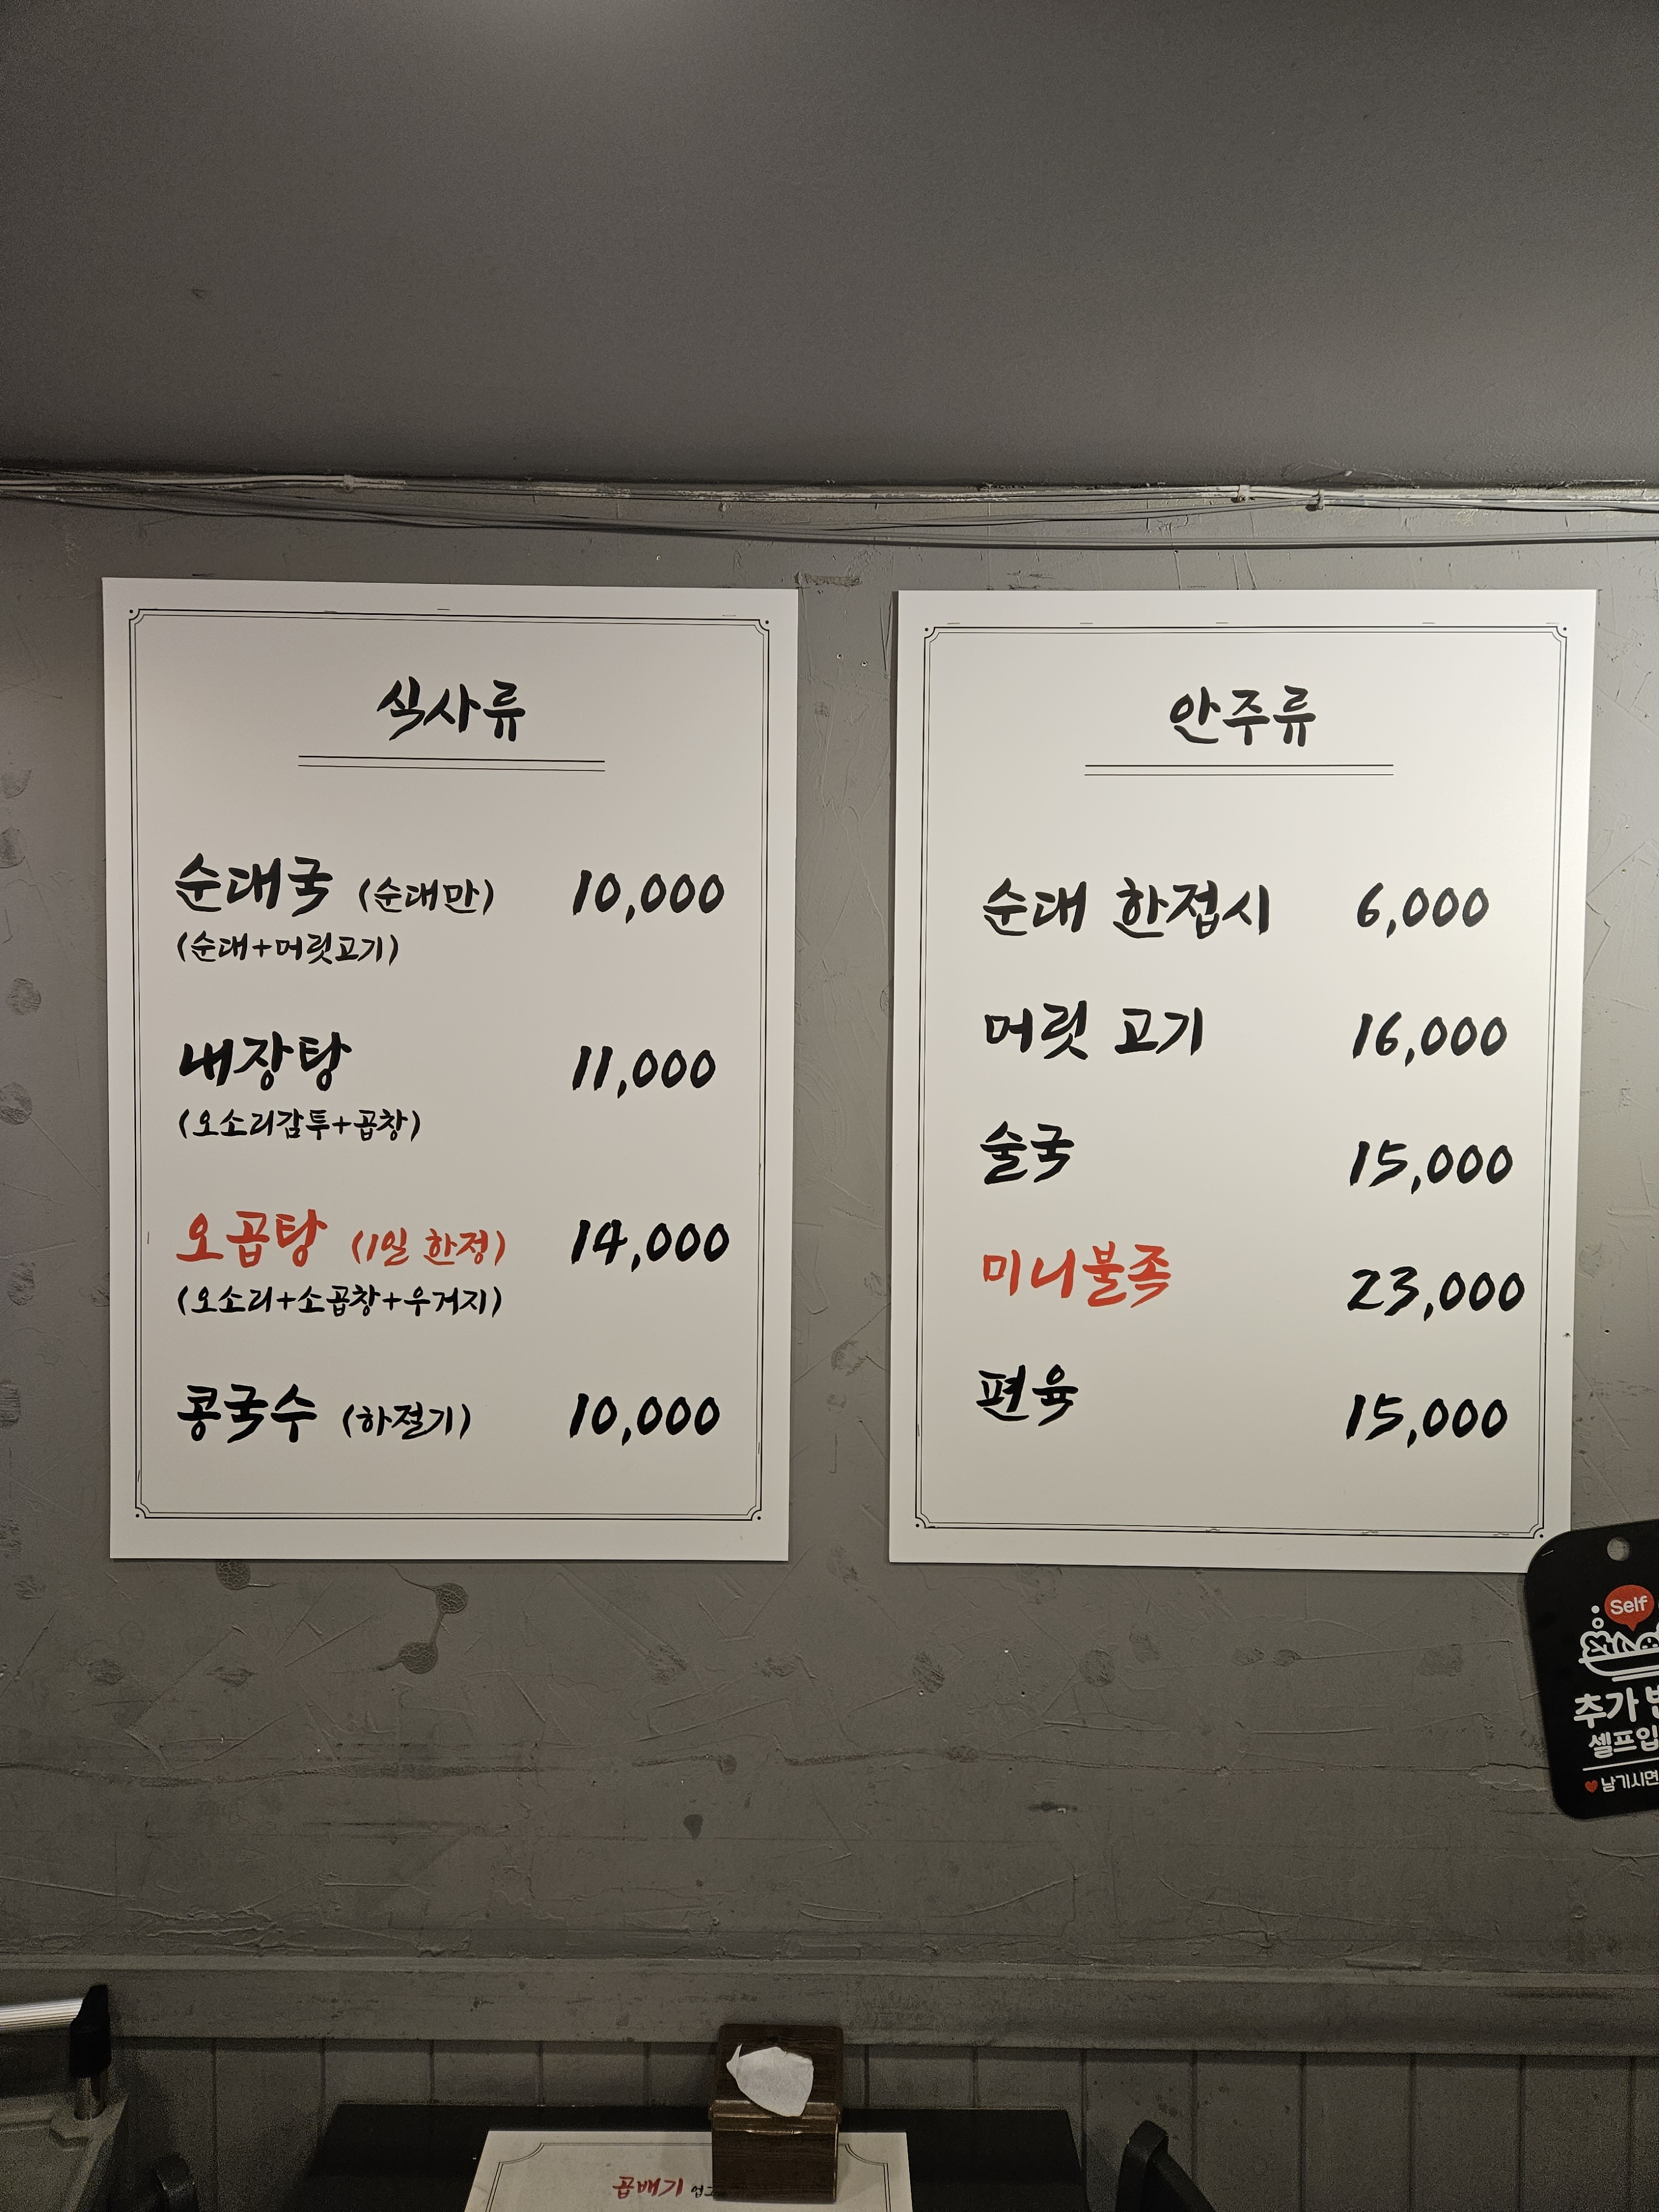 식사류
순대국 (순대만) 10,000
(순대+머릿고기)
내장탕 11,000
(오소리감투+곱창)
오곱탕 (1일 한정) 14,000
(오소리+소곱창+우거지)
콩국수 (하절기) 10,000
안주류
순대 한접시 6,000
머릿 고기 16,000
술국 15,000
미니불족 23,000
편육 15,000
Self
추가
셀프입
남기시면
곱배기